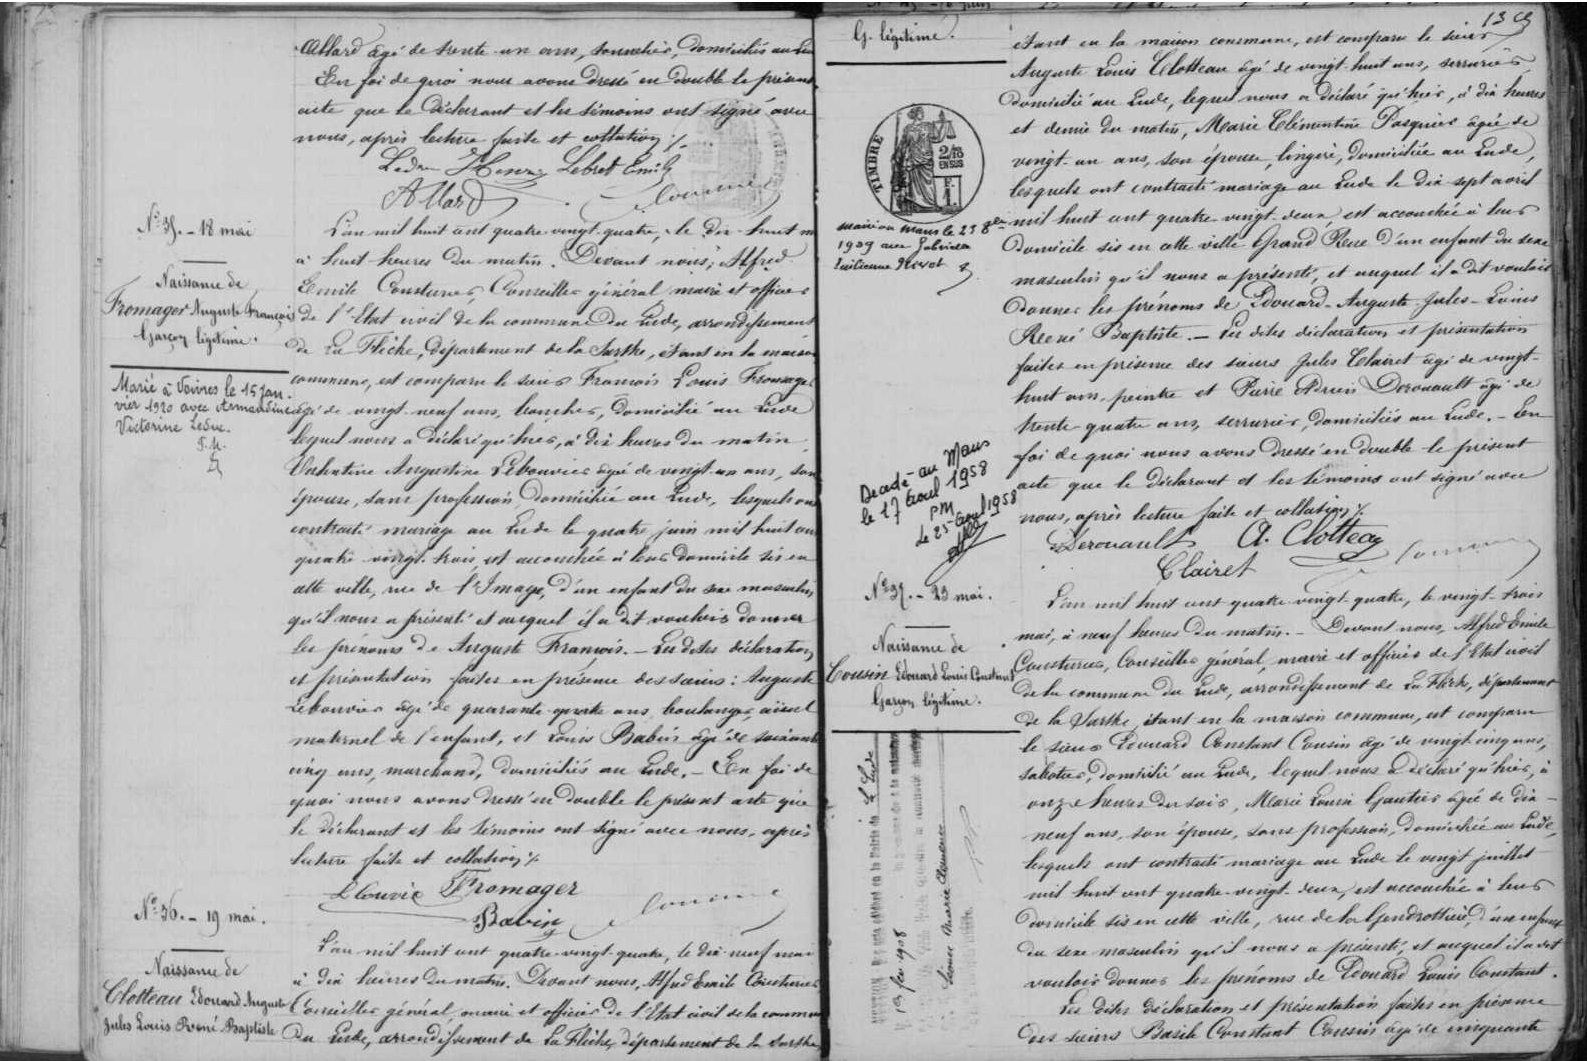 Allard âgé de trente un ans, sommelier, domiciliés au Lude
En foi de quoi nous avons dressé en double le présent
acte que le déclarant et les témoins ont signé avec
nous, après lecture faite et collation ./.
Lebret Emile
Allard
N° 35. - 18 mai
Naissance de
Fromager Auguste François
Garçon légitime.
Marié à Voivres le 15 jan-
vier 1920 avec Armandine
Victorine Leduc.
L'an mil huit cent quatre-vingt-quatre, le dix-huit m
à huit heures du matin. Devant nous, Alfred
Emile Coustures, Conseiller général maire et officier
de l'Etat civil de la commune du Lude, arrondissement
de La Flèche, département de la Sarthe, étant en la maison
commune, est comparu le sieur François Louis Fromager
âgé de vingt-neuf ans, boucher, domicilié au Lude
lequel nous a déclaré qu'hier, à dix heures du matin
Valentine Augustine Lebouvier âgée de vingt-un ans, son
épouse, sans profession, domiciliée au Lude, lesquels ont
contracté mariage au Lude le quatre juin mil huit cent
quatre-vingt-trois, est accouchée à leur domicile sis en
cette ville, rue de l'Image, d'un enfant du sexe masculin
qu'il nous a présenté et auquel il a dit vouloir donner
les prénoms de Auguste François. - Les dites déclaration
et présentation faites en présence des sieurs : Auguste
Lebouvier âgé de quarante-quatre ans, boulanger, aïeul
maternel de l'enfant, et Louis Babin âgé de soixante
cinq ans, marchand, domiciliés au Lude. - En foi de
quoi nous avons dressé en double le présent acte que
le déclarant et les témoins ont signé avec nous, après
lecture faite et collation ./.
Fromager
Babin
N° 36. - 19 mai.
Naissance de
Clotteau Edouard Auguste
Jules Louis René Baptiste
L'an mil huit cent quatre-vingt-quatre, le dix-neuf mai
à dix heures du matin. Devant nous, Alfred Emile Coustures
Conseiller général, maire et officier de l'Etat civil de la commune
du Lude, arrondissement de La Flèche, département de la Sarthe
G. légitime.
TIMBRE
2/10 EN SUS
F. 1.
Marié au Mans le 23 8bre
1909 avec Gabrielle
Décédé au Mans
le 17 Août 1958
PM
Le 25 Août 1958
étant en la maison commune, est comparu le sieur
Auguste Louis Clotteau âgé de vingt-huit ans, serrurier
domicilié au Lude, lequel nous a déclaré qu'hier, à dix heures
et demie du matin, Marie Clémentine Pasquier âgée de
vingt-un ans, son épouse, lingère, domiciliée au Lude,
lesquels ont contracté mariage au Lude le dix-sept avril
mil huit cent quatre-vingt-deux, est accouchée à leur
domicile sis en cette ville Grand Rue d'un enfant du sexe
masculin qu'il nous a présenté, et auquel il a dit vouloir
donner les prénoms de Edouard-Auguste-Jules-Louis
René Baptiste. - Les dites déclaration et présentation
faites en présence des sieurs Jules Clairet âgé de vingt-
huit ans, peintre et Pierre Adrien Derouault âgé de
trente-quatre ans, serrurier, domiciliés au Lude. - En
foi de quoi nous avons dressé en double le présent
acte que le déclarant et les témoins ont signé avec
nous, après lecture faite et collation ./.
Derouault A. Clotteau
Clairet
N° 37. - 23 mai.
Naissance de
Cousin Edouard Louis Constant
Garçon légitime.
Le Lude
L'an mil huit cent quatre-vingt-quatre, le vingt-trois
mai, à neuf heures du matin. - Devant nous, Alfred Emile
Coustures, Conseiller général, maire et officier de l'Etat civil
de la commune du Lude, arrondissement de La Flèche, département
de la Sarthe, étant en la maison commune, est comparu
le sieur Edouard Constant Cousin âgé de vingt-cinq ans,
sabotier, domicilié au Lude, lequel nous a déclaré qu'hier, à
onze heures du soir, Marie Louise Gautier âgée de dix-
neuf ans, son épouse, sans profession, domiciliée au Lude,
lesquels ont contracté mariage au Lude le vingt juillet
mil huit cent quatre-vingt-deux, est accouchée à leur
domicile sis en cette ville, rue de la Gendrottière, d'un enfant
du sexe masculin qu'il nous a présenté, et auquel il a dit
vouloir donner les prénoms de Edouard Louis Constant.
Les dites déclaration et présentation faites en présence
des sieurs Basile Constant Cousin âgé de cinquante